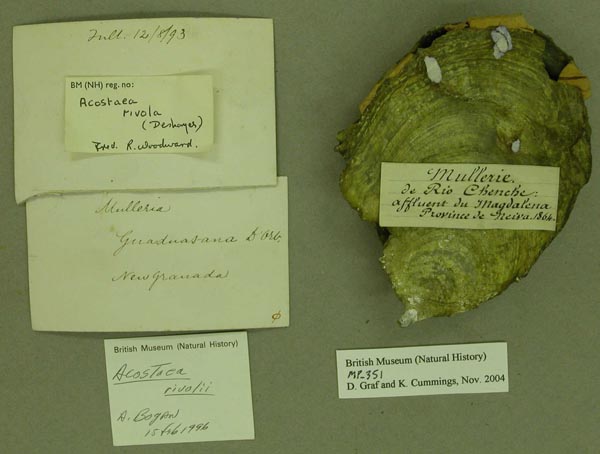 Jult. 12/8/93
BM (NH) reg. no:
Acostaea
rivola
(Deshayes)
Fred. R. Woodward.
Mulleria
Guaduasana D'Orb.
New Granada
British Museum (Natural History)
Acostaea
rivolii
A. Bogan
15 Feb 1996
Mullerie.
de Rio Chenche.
affluent du Magdalena
Province de Neiva. 1864.
British Museum (Natural History)
MP-351
D. Graf and K. Cummings, Nov. 2004